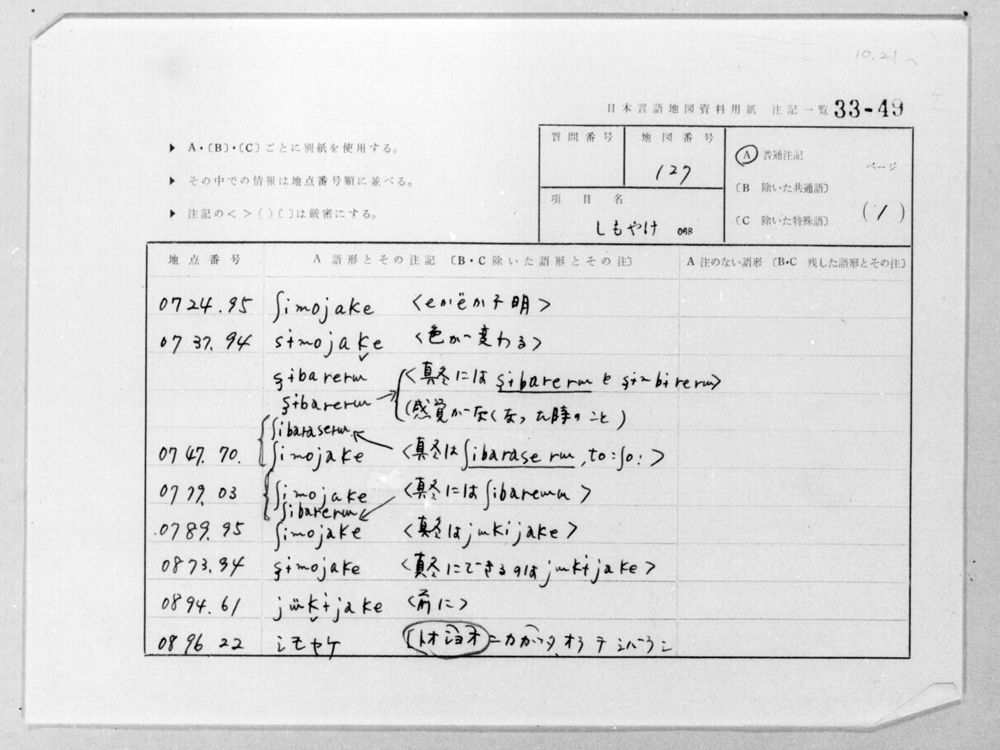 10.21
日本言語地図資料用紙 注記一覧 33-49
▶ A・〔B〕・〔C〕ごとに別紙を使用する。
▶ その中での情報は地点番号順に並べる。
▶ 注記の< >( )〔 〕は厳密にする。
質問番号
地図番号
127
項目名
しもやけ 068
Ⓐ 普通注記
〔B 除いた共通語〕
〔C 除いた特殊語〕
ページ
(1)
地点番号 A 語形とその注記〔B・C除いた語形とその注〕 A 注のない語形〔B・C 残した語形とその注〕
0724.95 ʃimojake <eかëか不明>
0737.94 sɨmojake <色が変わる>
şɨbarerɯ <真冬には şɨbarerɯ と şɨmbirerɯ>
şɨbarerɯ (感覚がなくなった時のこと)
ʃibaraserɯ
0747.70. ʃimojake <真冬はʃibaraserɯ, to:ʃo:>
0779.03 ʃimojake <真冬にはʃibarerɯ>
ʃibarerɯ
0789.95 ʃimojake <真冬はjɯkijake>
0873.94 şɨmojake <真冬にできるのはjɯkɨjake>
0894.61 jɯ̈kɨjake <前に>
0896.22 シモヤケ 〔トオショオ=カカッタ